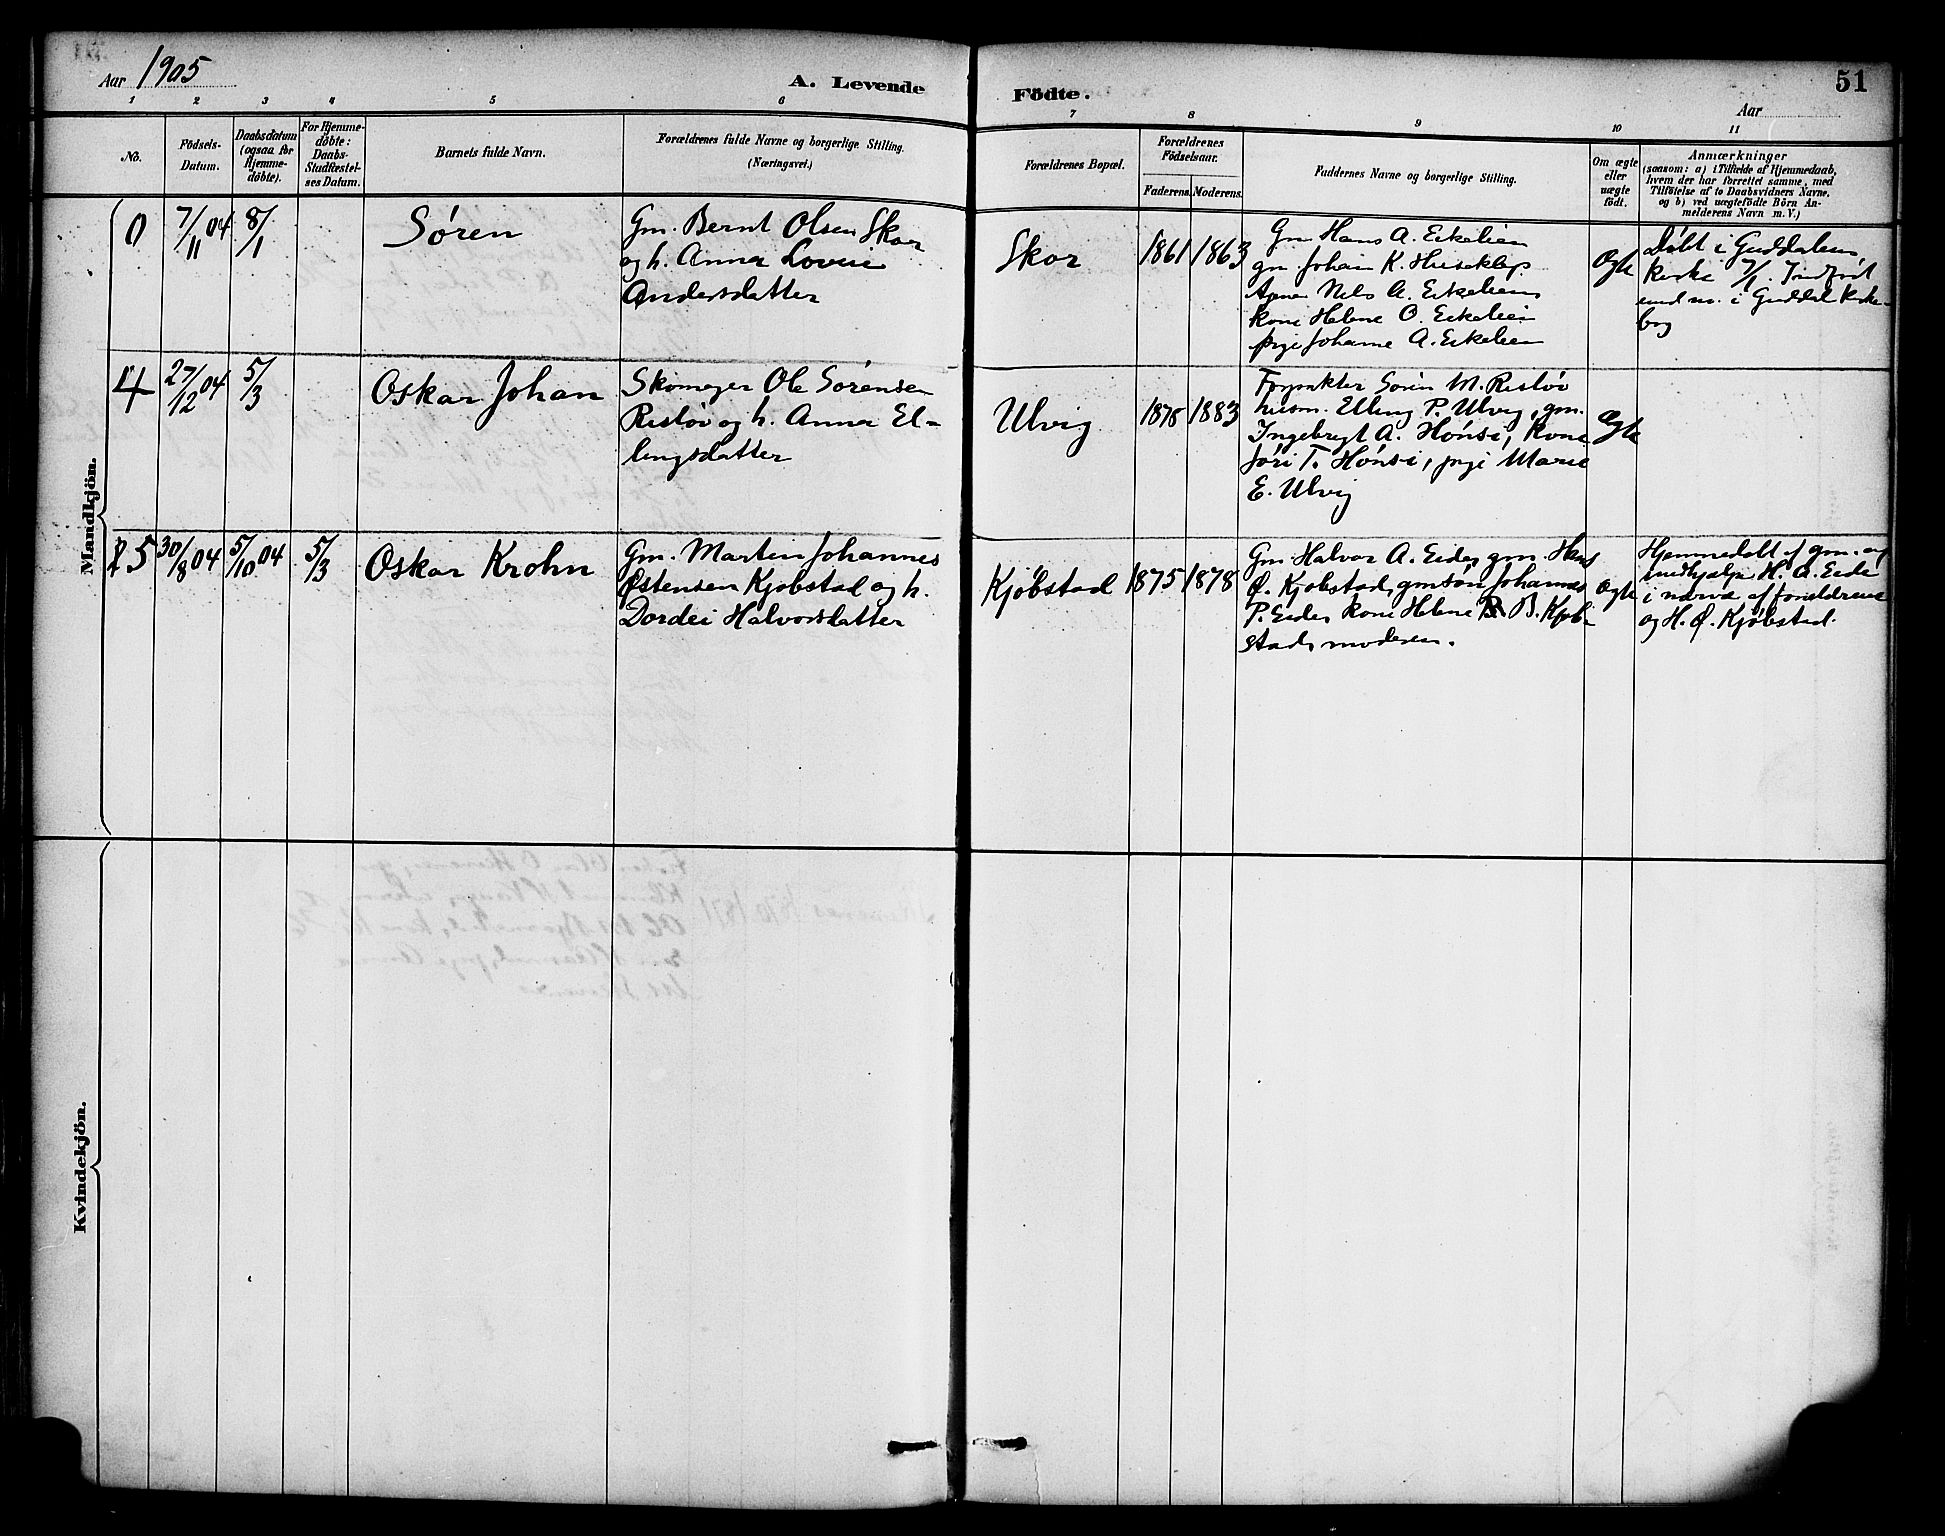 Aar 1905
A. Levende
Födte.
51
Aar
1 2 3 4 5 6 7 8 9 10 11
No.
Födsels-
Datum.
Daabsdatum
(ogsaa for
Hjemme-
døbte).
For Hjemme-
døbte:
Daabs-
Stadfæstel-
ses Datum.
Barnets fulde Navn.
Forældrenes fulde Navne og borgerlige Stilling.
(Næringsvei.)
Forældrenes Bopæl.
Forældrenes
Födselsaar.
Faderens. Moderens.
Faddernes Navne og borgerlige Stilling.
Om ægte
eller
uægte
födt.
Anmærkninger
(saasom: a) i Tilfælde af Hjemmedaab,
hvem der har forrettet samme, med
Tilföielse af to Daabsvidners Navne,
og b) ved uægtefödte Börn An-
melderens Navn m. V.)
Mandkjön.
0
7/11 04
8/1
Søren
Gm. Bernt Olsen Skor
og h. Anna Lovise
Andersdatter
Skor
1861
1863
Gm Hans A. Eikelien
gm. Johan K. Huseklep
Nils A. Eikelien
kone Helene O. Eikelien
pige Johanne A. Eikelien
Ægte
Døbt i Guddalens
kirke 7/1. Indført
und. m. i Guddal kirke-
bog
4
27/12 04
5/3
Oskar Johan
Skomager Ole Sørensen
Risløv og h. Anna El-
lingsdatter
Ulvig
1878
1883
Forpakter Sørin M. Risløv
husm. Elling P. Ulvig, gm.
Ingebrygt A. Hønsi, Kone
Jóri T. Hønsi, pige Marie
E. Ulvig
Ægte
5
30/8 04
5/10 04
5/3
Oskar Krohn
Gm. Martin Johannes
Østensen Kjøbstad og h.
Dordei Halvorsdatter
Kjøbstad
1875
1878
Gm Halvor A. Eide, gm. Hans
Ø. Kjøbstad, gmsøn Johannes
P. Eide, kone Helene B. Kjøb-
stad, moderen.
Ægte
Hjemmedøbt af gm. og
medhjælp. H. A. Eide
i nærvæ af forældrene
og H. Ø. Kjøbstad.
Kvindekjön.